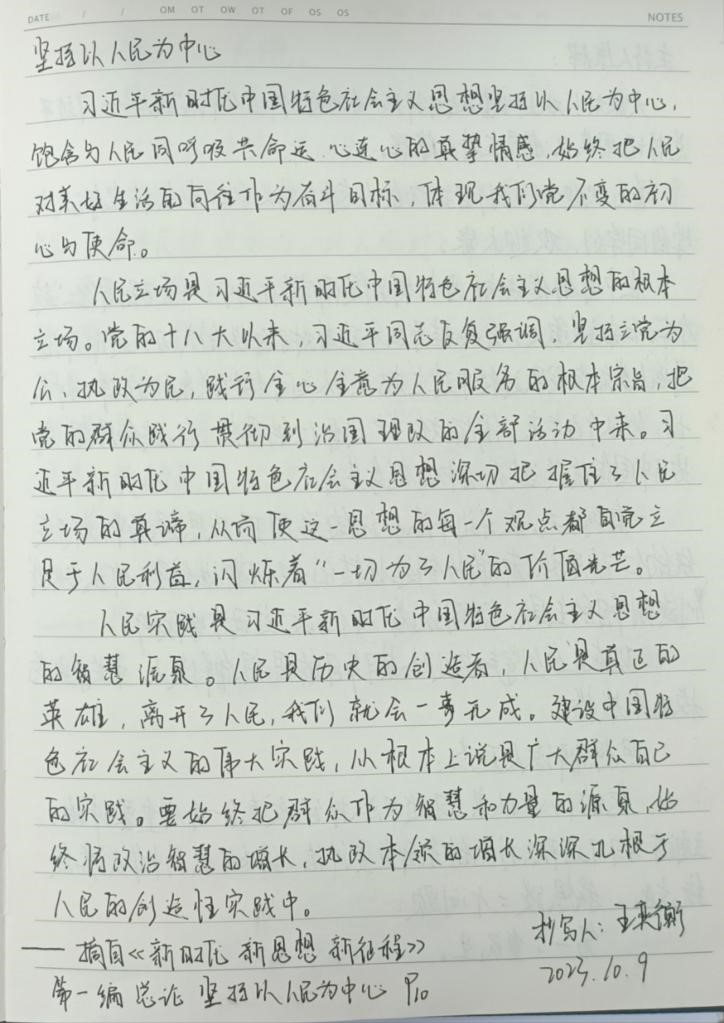 DATE / / OM OT OW OT OF OS OS NOTES
坚持以人民为中心
习近平新时代中国特色社会主义思想坚持以人民为中心，
饱含与人民同呼吸共命运、心连心的真挚情感，始终把人民
对美好生活的向往作为奋斗目标，体现我们党不变的初
心与使命。
人民立场是习近平新时代中国特色社会主义思想的根本
立场。党的十八大以来，习近平同志反复强调，坚持立党为
公、执政为民，践行全心全意为人民服务的根本宗旨，把
党的群众践行贯彻到治国理政的全部活动中来。习
近平新时代中国特色社会主义思想深切把握住了人民
立场的真谛，从而使这一思想的每一个观点都自觉立
足于人民利益，闪烁着“一切为了人民”的价值光芒。
人民实践是习近平新时代中国特色社会主义思想
的智慧源泉。人民是历史的创造者，人民是真正的
英雄，离开了人民，我们就会一事无成。建设中国特
色社会主义的伟大实践，从根本上说是广大群众自己
的实践。要始终把群众作为智慧和力量的源泉，始
终将政治智慧的增长、执政本领的增长深深扎根于
人民的创造性实践中。
——摘自《新时代 新思想 新征程》
第一编 总论 坚持以人民为中心 P10
抄写人：王奕衡
2023.10.9